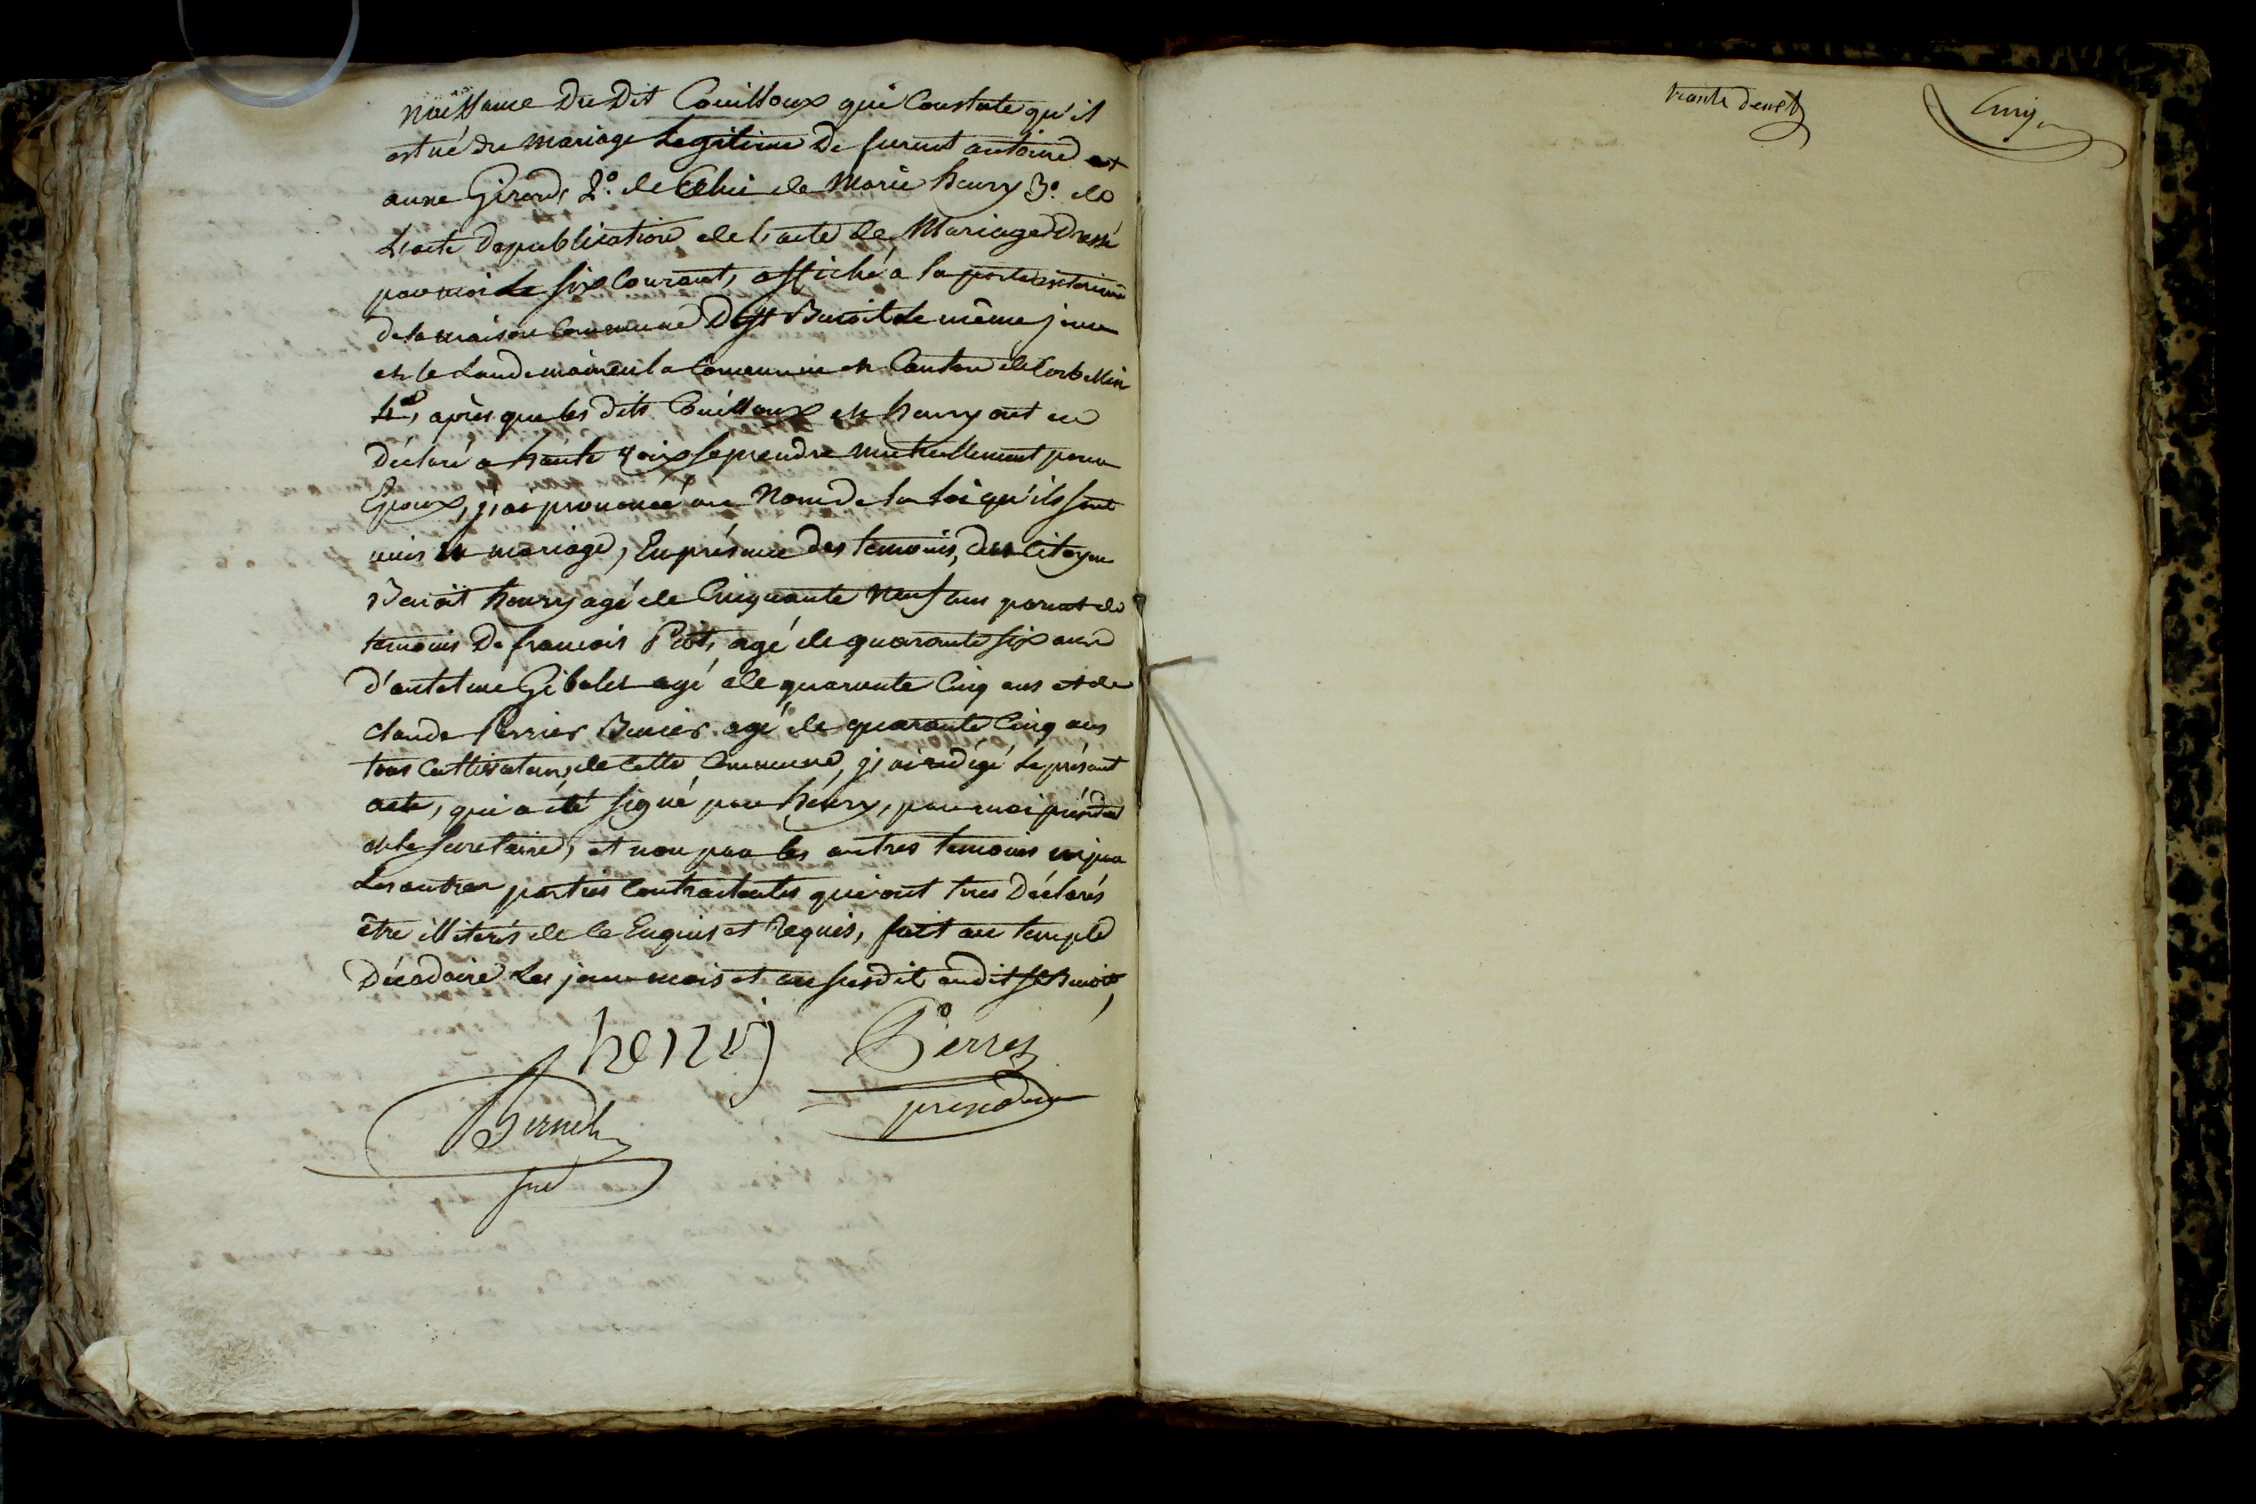 naissance du dit Couilloux qui Constate qu'il
est né du mariage Legitime de furent antoine et
anne Girord, 2.° de Celui de Marie henry 3.° de
L'acte de publication de l'acte de Mariage dressé
par moi Le six Courant, affiché a la porte exterieure
de la maison Commune de St Benoit Le même jour
et le Landemain en la Commune et Canton de
4°, après que les dits Couilloux et henry ont eu
déclaré a haute voix se prendre mutuellement pour
Epoux, j'ai prononcé au Nom de la Loi qu'ils sont
unis en mariage, En présence des temoins, du Citoyen
Benoit henry agé de Cinquante Neuf ans
temoins de francois agé de quarante six ans
d'antelme Gibolet agé de quarante Cinq ans et de
Claude Perrier agé de quarante Cinq ans
tous Cultivateurs de Cette Commune, j'ai rédigé Le présent
acte, qui a été signé par henry, par moi président
et le secretaire, et non par les autres temoins ni par
Les autres parties Contractantes qui ont tous déclarés
être illiterés de ce Enquis et Requis, fait au temple
décadaire Les jour mois et an susdit audit St Benoit,
henry
président
trante deux